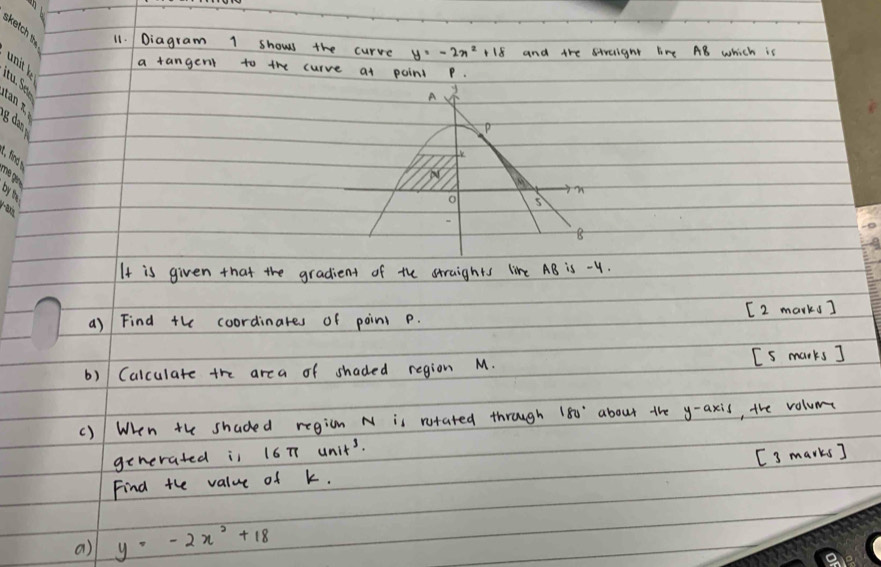 sketch the
unit
itu. 
utan π
by the
y-axis
11. Diagram 1 shows the curve y = -2x² + 18 and the straight line AB which is
a tangent to the curve at point P.
y
A
P
k
N
x
O
5
B
It is given that the gradient of the straights line AB is -4.
a) Find the coordinates of point P. [2 marks]
b) Calculate the area of shaded region M. [5 marks]
c) When the shaded region N is rotated through 180° about the y-axis, the volume
generated is 16π unit³.
Find the value of k. [3 marks]
a) y = -2x² + 18